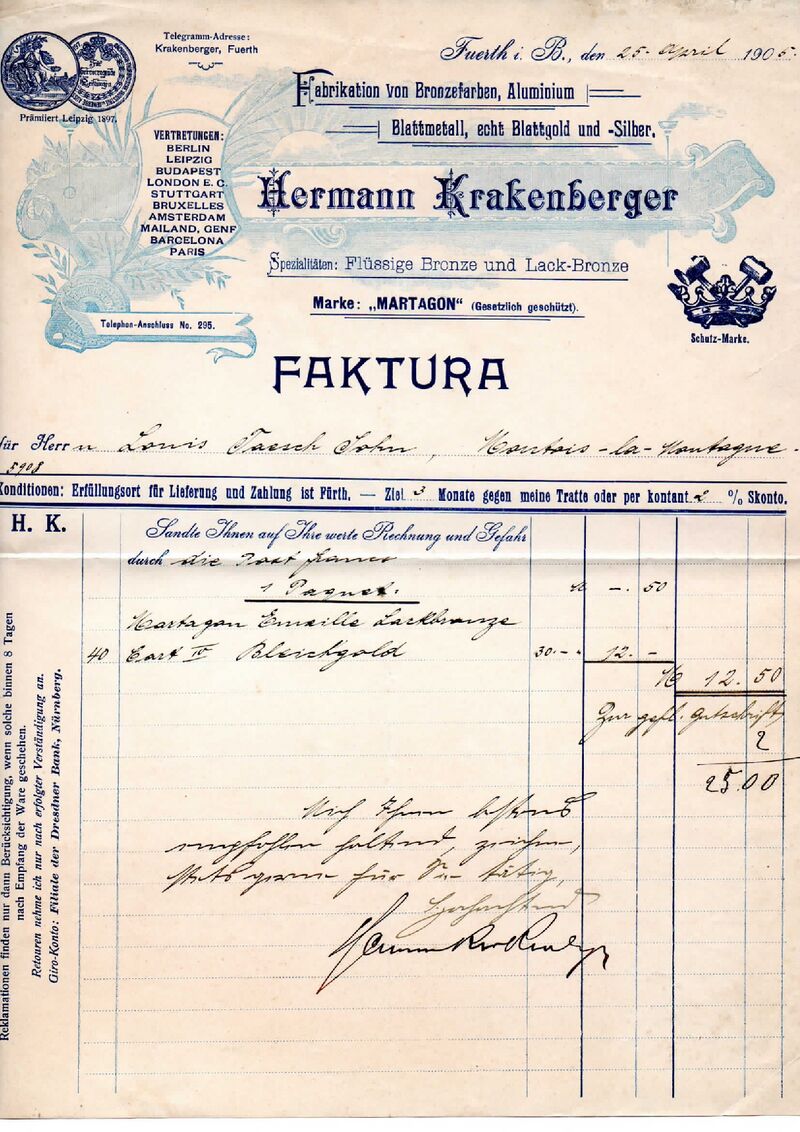 Telegramm-Adresse:
Krakenberger, Fuerth
Prämiiert Leipzig 1897.
Fuerth i. B., den 25. April 1905.
Fabrikation von Bronzefarben, Aluminium
Blattmetall, echt Blattgold und -Silber.
VERTRETUNGEN:
BERLIN
LEIPZIG
BUDAPEST
LONDON E. C.
STUTTGART
BRUXELLES
AMSTERDAM
MAILAND, GENF
BARCELONA
PARIS
Hermann Krakenberger
Spezialitäten: Flüssige Bronze und Lack-Bronze
Marke: „MARTAGON" (Gesetzlich geschützt).
Telephon-Anschluss No. 295.
Schutz-Marke.
FAKTURA
für Herrn Louis Taesch Sohn, Montois-la-Montagne.
5908
Konditionen: Erfüllungsort für Lieferung und Zahlung ist Fürth. — Ziel 3 Monate gegen meine Tratte oder per kontant 2 % Skonto.
H. K.
Sandte Ihnen auf Ihre werte Rechnung und Gefahr
durch die Post franco
1 Paquet. M -. 50
Martagon Emaille Lackbronze
40 Cart IV Bleichgold 30.- 12. -
M 12. 50
Zur gefl. Gutschrift
2
25.00
Mich Ihnen bestens
empfohlen haltend, zeichne,
stets gerne für Sie tätig,
Hochachtend
Hermann Krakenberger
Reklamationen finden nur dann Berücksichtigung, wenn solche binnen 8 Tagen
nach Empfang der Ware geschehen.
Retouren nehme ich nur nach erfolgter Verständigung an.
Giro-Konto: Filiale der Dresdner Bank, Nürnberg.